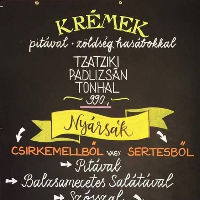 KRÉMEK
pitával · zöldség hasábokkal
TZATZIKI
PADLIZSÁN
TONHAL
990,-
Nyársák
CSIRKEMELLBŐL VAGY SERTESBŐL
→ Pitával
→ Balzsamecetes Salátával